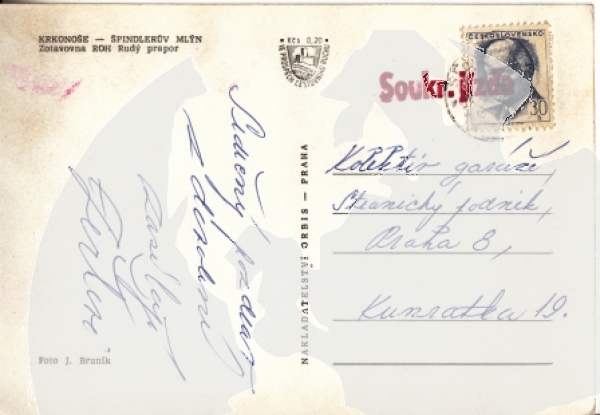 KRKONOŠE — ŠPINDLERŮV MLÝN
Zotavovna ROH Rudý prapor
Kčs 0,20
VE PROSPĚCH CESTOVNÍHO RUCHU
ČESKOSLOVENSKO
30
Soukr. jízda
Srdečný pozdrav
z dovolené
zasílají
NAKLADATELSTVÍ ORBIS — PRAHA
Kolektiv garáže,
Stavnický podnik,
Praha 8,
Kunratka 19.
Foto J. Bruník